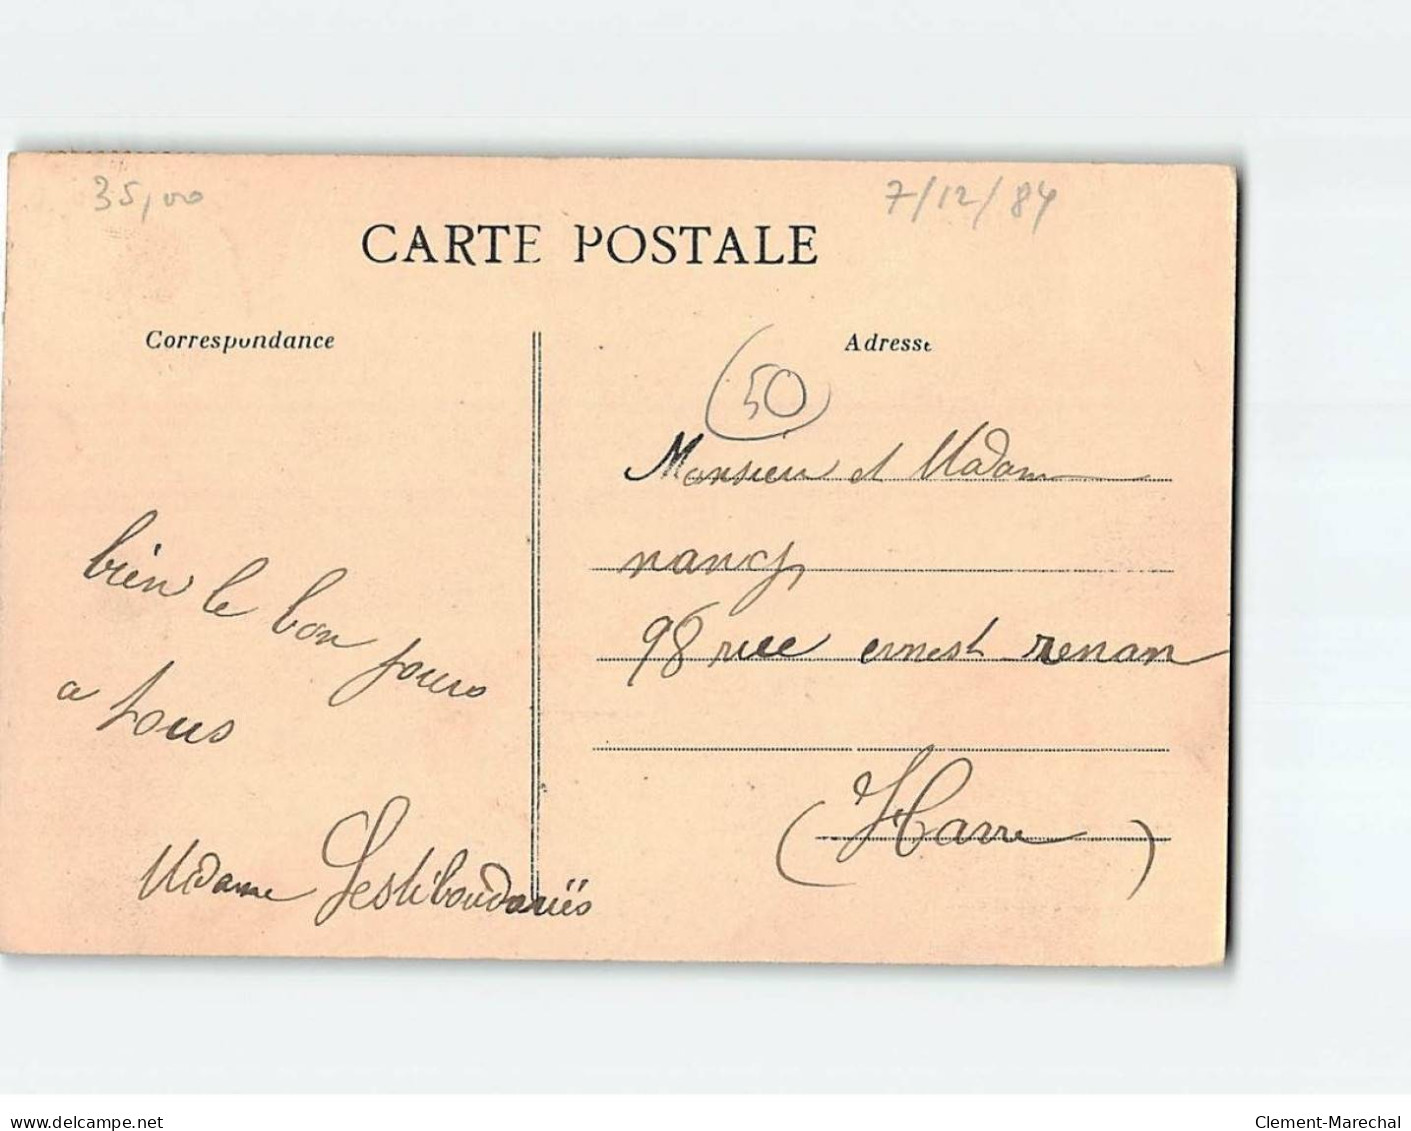 35,00
7/12/84
CARTE POSTALE
Correspondance
Adresse
50
Monsieur et Madam
nancy
98 rue ernest renan
(Havre)
bien le bon jours
a tous
Madame
delcampe.net
Clement-Marechal